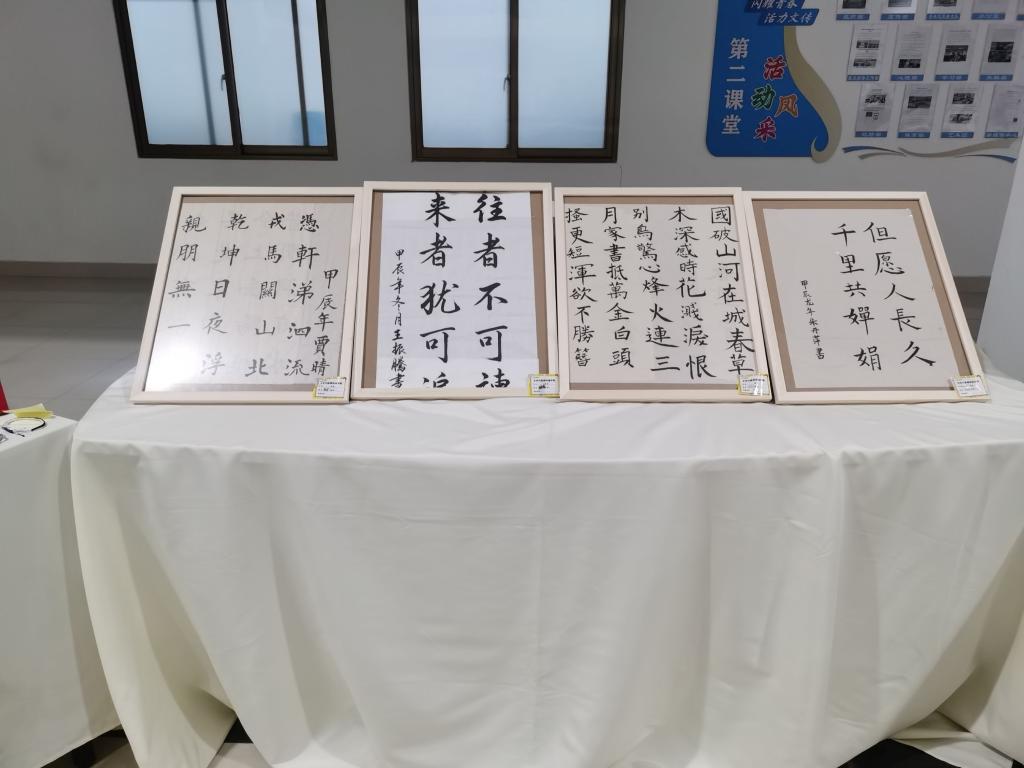 闪耀青春
活力文传
第二课堂
活动风采
甲辰年賈晴
憑軒涕泗流
戎馬關山北
乾坤日夜浮
親朋無一
往者不可諫
来者犹可追
甲辰年冬月王振騰書
國破山河在城春草
木深感時花濺淚恨
别鳥驚心烽火連三
月家書抵萬金白頭
搔更短渾欲不勝簪
但愿人長久
千里共嬋娟